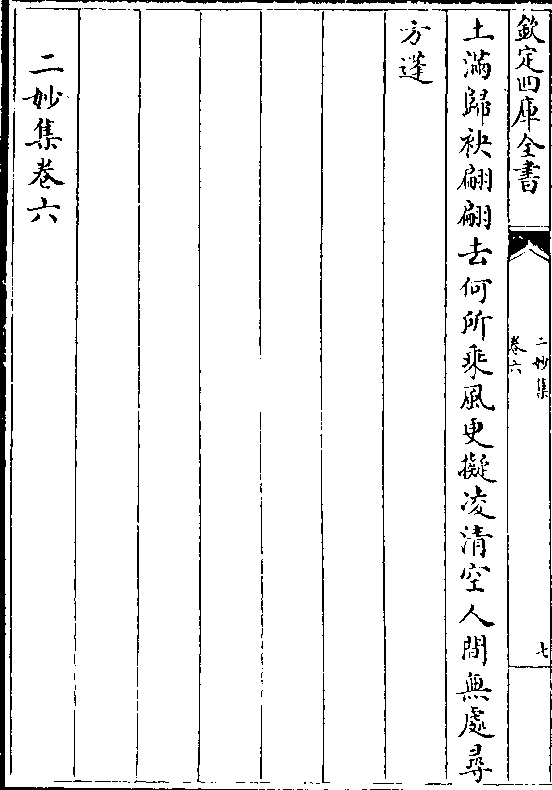 欽定四庫全書
二妙集
卷六
七
土滿歸袂翩翩去何所乘風更擬凌清空人間無處尋
方蓬
二妙集卷六